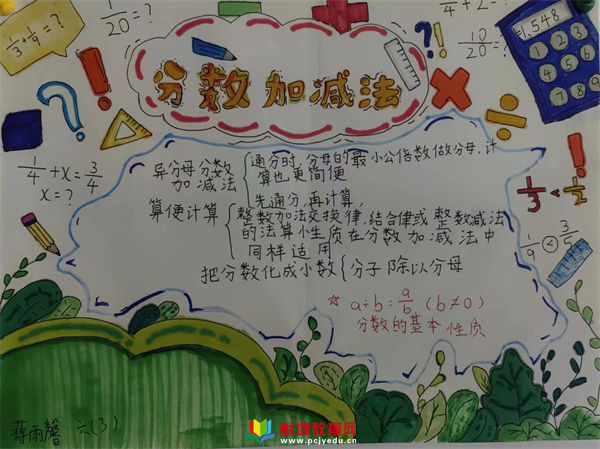 1/3+1/9=?
1/20=?
1/4+2=
10/20=?
1.548
分数加减法
1/4+x=3/4
x=?
异分母分数
加减法
通分时,分母的最小公倍数做分母,计
算也更简便
先通分,再计算,
算便计算
整数加法交换律,结合律或整数减法
的法算小性质在分数加减法中
同样适用
把分数化成小数{分子除以分母
☆a÷b=a/b(b≠0)
分数的基本性质
1/3<1/2
1/9<3/5
蒋雨馨 六(3)
彩墙教育网
www.pcjyedu.cn